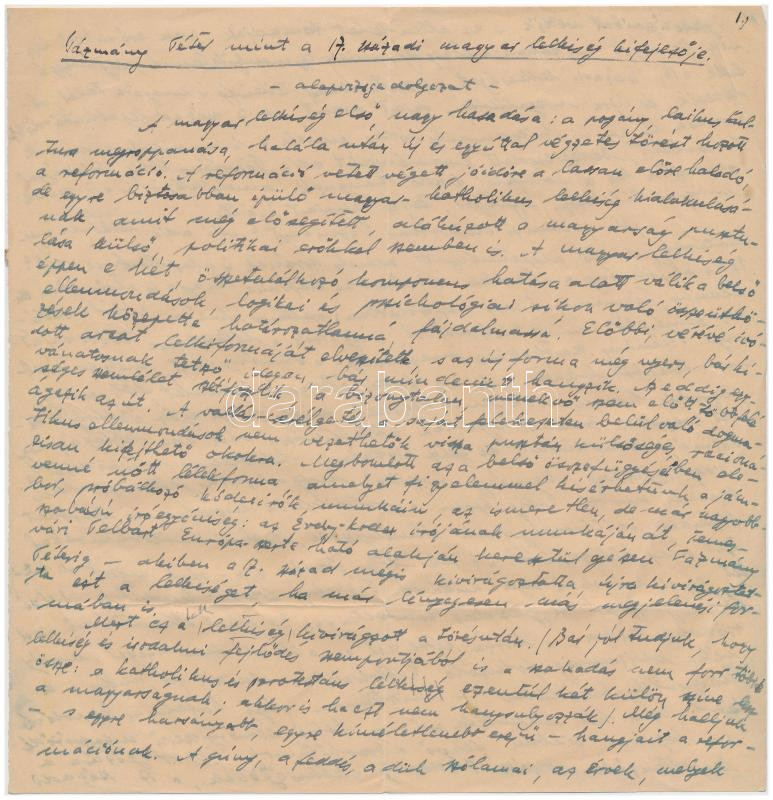 1.)
Pázmány Péter mint a 17. századi magyar lelkiség kifejezője.
- alapvizsgadolgozat -
A magyar lelkiség első, nagy hasadása: a pogány, laikus kul-
tura megroppanása, halála után új és egyúttal végzetes törést hozott
a reformáció. A reformáció vetett végett jóidőre a lassan előre haladó
de egyre biztosabban épülő magyar-katholikus lelkiség kialakulásá-
nak, amit még elősegített, aláhúzott a magyarság pusztu-
lása külső politikai erőkkel szemben is. A magyar lelkiség
éppen e két összetalálkozó komponens hatása alatt válik a belső
ellenmondások, logikai és pszichológiai síkon való összeütkö-
zések közepette határozatlanná, fájdalmassá. Előbbi, vérévé ivó-
dott arcát lelkiformáját elveszítette s az új forma még nyers, bár kí-
vánatosnak tetsző idegen, báj mindenütt hangzik. Az eddig egy-
séges szemlélet szétfoszlik a bizonytalan menekvő szem előtt s kétfelé
ágazik az út. A vallás-erkölcsi saját kereteiken belül való dogma-
tikus ellenmondások nem vezethetők vissza pusztán külsőséges, racioná-
lisan kifejthető okokra. Megbomlott az a belső összefüggésében ele-
venné nőtt lélekforma amelyet figyelemmel kísérhetünk a jám-
bor, próbálkozó kódexírók munkáin, az ismeretlen, de már nagyobb-
szabású íróegyéniség: az Érdy-kódex írójának munkáján át, Temes-
vári Pelbárt Európa-szerte ható alakján keresztül egészen Pázmány
Péterig - akiben a 17. század mégis kivirágoztatta újra kivirágoztat-
ta ezt a lelkiséget, ha már lényegesen más megjelenési for-
mában is.
Mert ez a lelkiség kivirágzott a törés után. (Bár jól tudjuk, hogy
lelkiség és irodalmi fejlődés szempontjából is a szakadás nem forr többé
össze: a katholikus és protestáns lélekiség ezentúl két külön színe lesz
a magyarságnak, akkor is ha ezt nem hangsulyozzák). Még halljuk
- s egyre harsányabb, egyre kíméletlenebb erejű - hangjait a refor-
mációnak. A gúny, a feddés, a düh szólamai, az érvek, melyek
darabanth